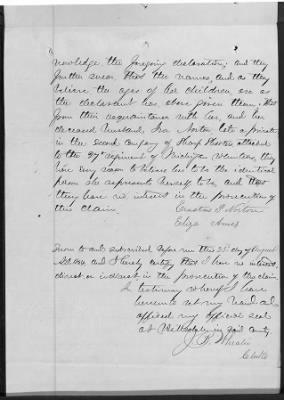 nowledge the foregoing declaration; and they
further swear that the names, and as they
believe the ages of her children are as
the declarant has above given them; that
from their acquaintance with her, and her
deceased husband, Ira Norton late a private
in the second company of Sharp Shooters attached
to the 27th regiment of Michigan volunteers, they
have every reason to believe her to be the identical
person she represents herself to be and that
they have no interest in the prosecution of
this claim.
Erastus S. Norton
Eliza Ames
Sworn to and subscribed before me this 23d day of August
A.D. and I hereby certify that I have no interest
direct or indirect in the prosecution of the claim.
In testimony whereof I have
hereunto set my hand and
affixed my official seal
at in said county.
J. B. Wheeler
Clerk